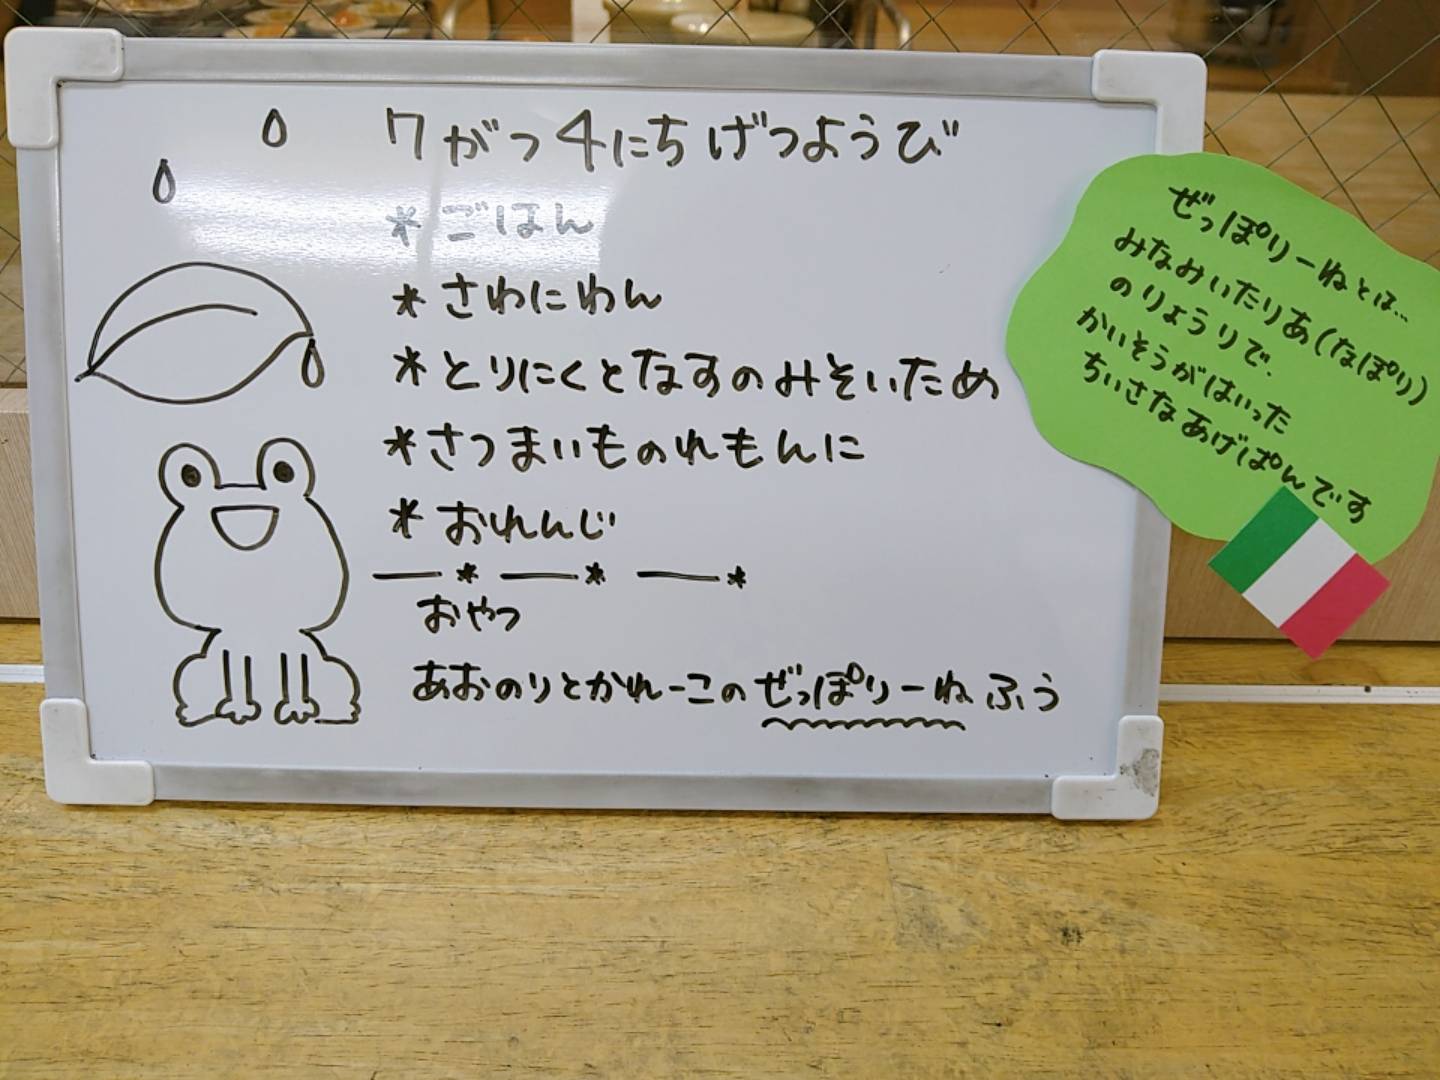 7がつ4にち げつようび
* ごはん
* さわにわん
* とりにくとなすのみそいため
* さつまいものれもんに
* おれんじ
おやつ
あおのりとかれーこのぜっぽりーねふう
ぜっぽりーねとは…
みなみいたりあ(なぽり)
のりょうりで、
かいそうがはいった
ちいさなあげぱんです